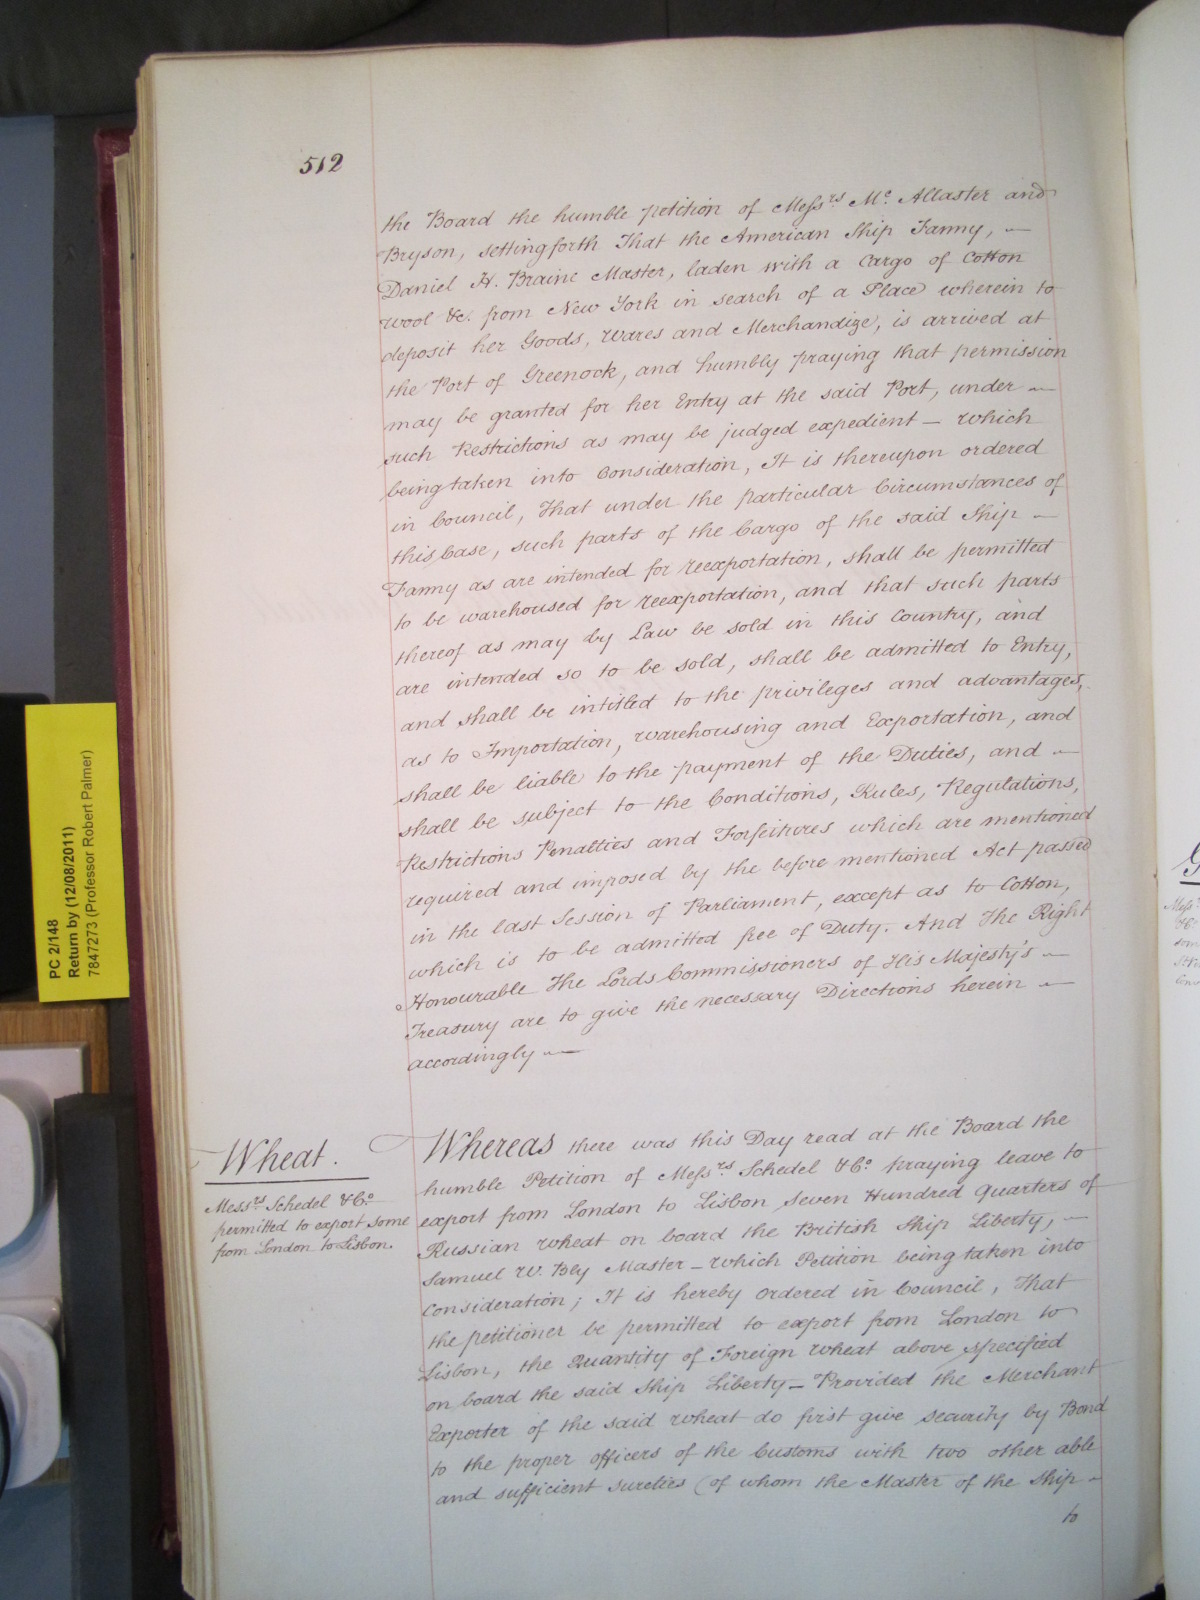 512
the Board the humble petition of Messrs. Mc. Allaster and
Bryson, setting forth That the American Ship Fanny, —
Daniel H. Braine Master, laden with a Cargo of Cotton
Wool &c. from New York in search of a Place wherein to
deposit her Goods, Wares and Merchandize, is arrived at
the Port of Greenock, and humbly praying that permission
may be granted for her Entry at the said Port, under —
such Restrictions as may be judged expedient — which
being taken into Consideration, It is thereupon ordered
in Council, That under the particular Circumstances of
this Case, such parts of the Cargo of the said Ship —
Fanny as are intended for reexportation, shall be permitted
to be warehoused for reexportation, and that such parts
thereof as may by Law be sold in this Country, and
are intended so to be sold, shall be admitted to Entry,
and shall be intitled to the privileges and advantages,
as to Importation, warehousing and Exportation, and
shall be liable to the payment of the Duties, and —
shall be subject to the Conditions, Rules, Regulations,
Restrictions Penalties and Forfeitures which are mentioned
required and imposed by the before mentioned Act passed
in the last Session of Parliament, except as to Cotton,
which is to be admitted free of Duty. And The Right
Honourable The Lords Commissioners of His Majesty's —
Treasury are to give the necessary Directions herein —
accordingly —
Wheat.
Messrs. Schedel & Co.
permitted to export some
from London to Lisbon.
Whereas there was this Day read at the Board the
humble Petition of Messrs. Schedel & Co. praying leave to
export from London to Lisbon Seven Hundred Quarters of
Russian Wheat on board the British Ship Liberty, —
Samuel W. Bly Master — which Petition being taken into
Consideration; It is hereby ordered in Council, That
the petitioner be permitted to export from London to
Lisbon, the Quantity of Foreign Wheat above specified
on board the said Ship Liberty — Provided the Merchant
Exporter of the said Wheat do first give security by Bond
to the proper officers of the Customs with two other able
and sufficient sureties (of whom the Master of the Ship —
to
PC 2/148
Return by (12/08/2011)
7847273 (Professor Robert Palmer)